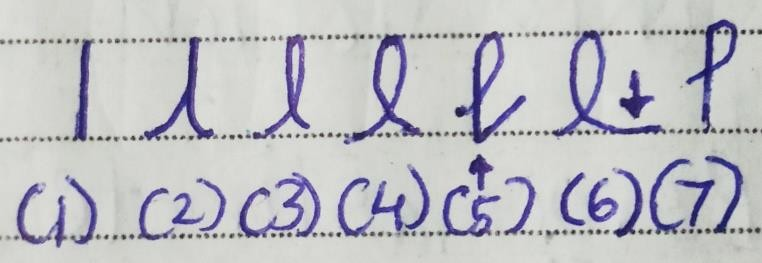 l l l l l l l
(1) (2) (3) (4) (5) (6) (7)